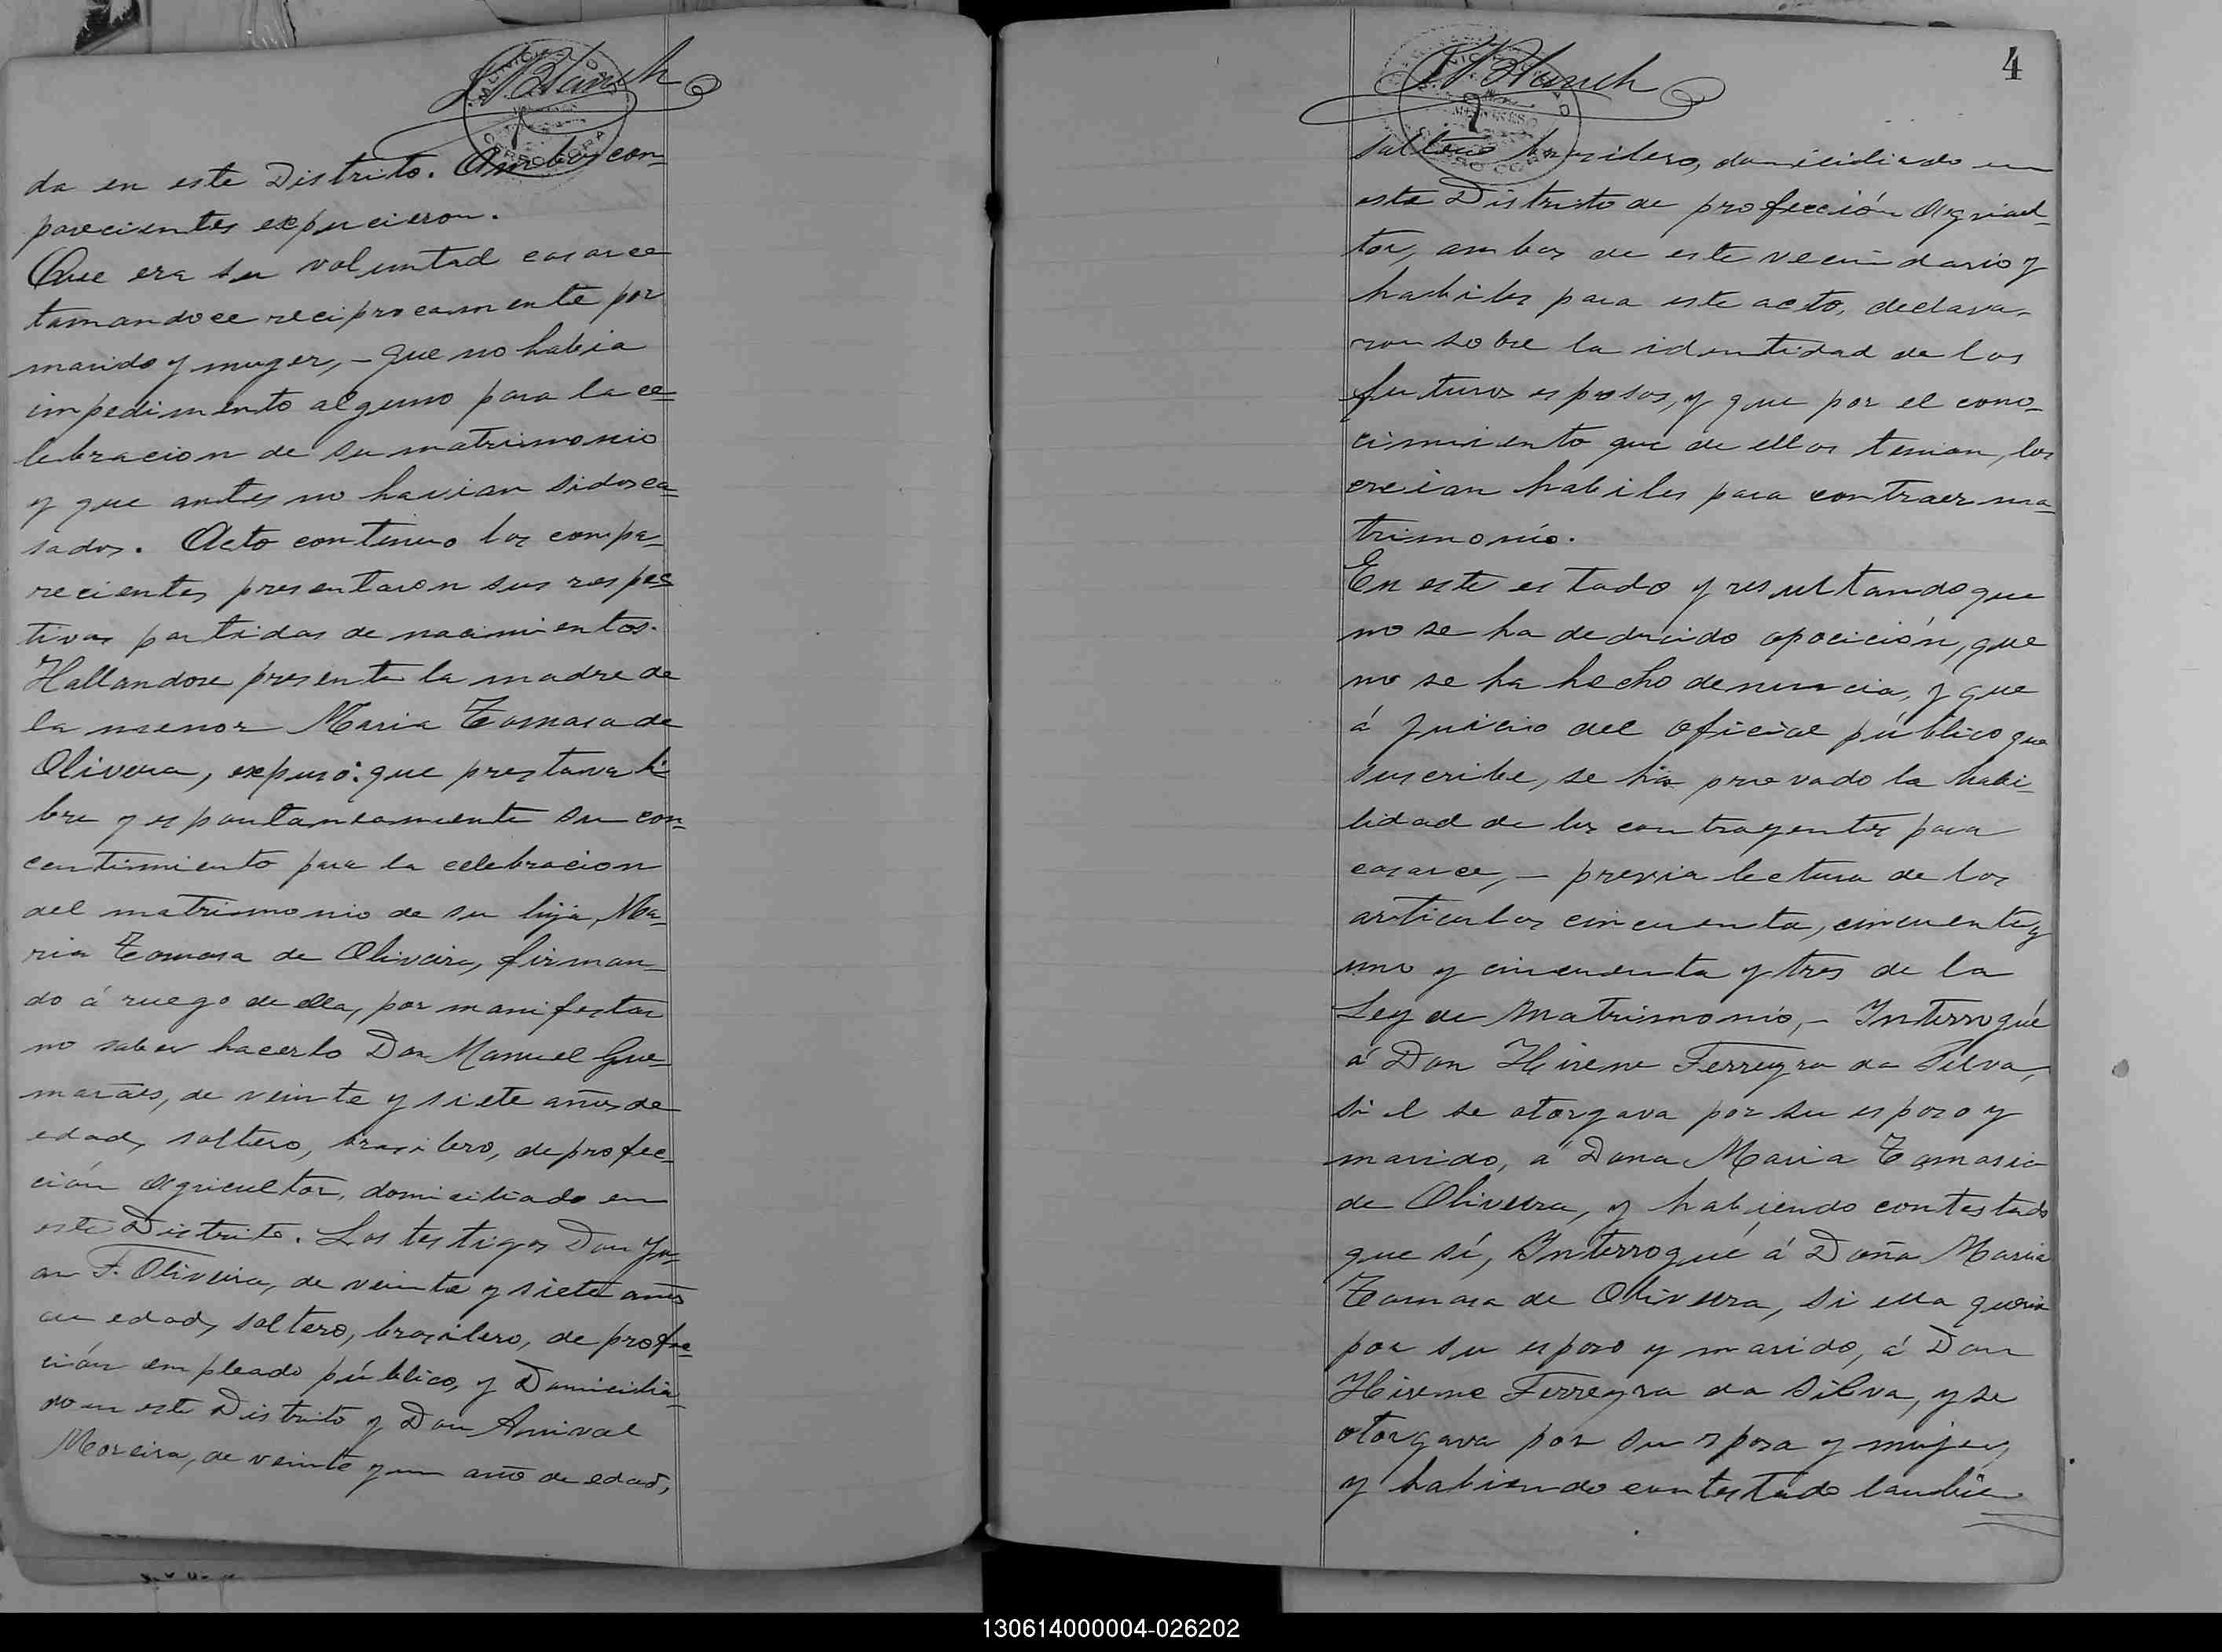 Blanch
da en este Distrito. Ambos con-
parecientes expucieron.
Que era su voluntad casarce
tomandoce reciprocamente por
marido y muger, - que no habia
impedimento alguno para la ce-
lebracion de su matrimonio
y que antes no havian sidos ca-
sados. Acto continuo los compa-
recientes presentaron sus respec
tivas partidas de nacimientos.
Hallandose presente la madre de
la menor Maria Tomasa de
Olivera, expuso: que prestava li
bre y espontaneamente su con-
centimiento para la celebracion
del matrimonio de su hija, Ma-
ria Tomasa de Oliveira, firman-
do á ruego de ella, por manifestar
no saber hacerlo Don Manuel Gue-
maraes, de veinte y siete años de
edad, soltero, brasilero, de profec-
ción Agricultor, domiciliado en
este Distrito. Los testigos Don Ju-
an F. Oliveira, de veinte y siete años
de edad, soltero, brasilero, de profec-
ción empleado público, y Domicilia-
do en este Distrito y Don Anival
Moreira, de veinte y un año de edad,
Blanch
4
soltero brasilero, domiciliado en
este Distrito de profección Agricul-
tor, ambos de este vecindario y
habiles para este acto, declara-
ron sobre la identidad de los
futuros esposos, y que por el cono-
cimiento que de ellos tenian, los
creian habiles para contraer ma-
trimonio.
En este estado y resultando que
no se ha deducido opocición, que
no se ha hecho denuncia, y que
á juicio del oficial público que
suscribe, se ha provado la habi-
lidad de los contrayentes para
casarce, - previa lectura de los
articulos cincuenta, cincuenta y
uno y cincuenta y tres de la
Ley de Matrimonio, - Interrogué
a Don Hirene Ferreyra da Silva,
si el se otorgava por su esposo y
marido, a Dona Maria Tomasia
de Oliveira, y habiendo contestado
que sí, Interrogué á Doña Maria
Tomasa de Oliveira, si ella queria
por su esposo y marido, á Don
Hireme Ferreyra da Silva, y se
otorgava por su esposa y mujer,
y habiendo contestado tambien
130614000004-026202